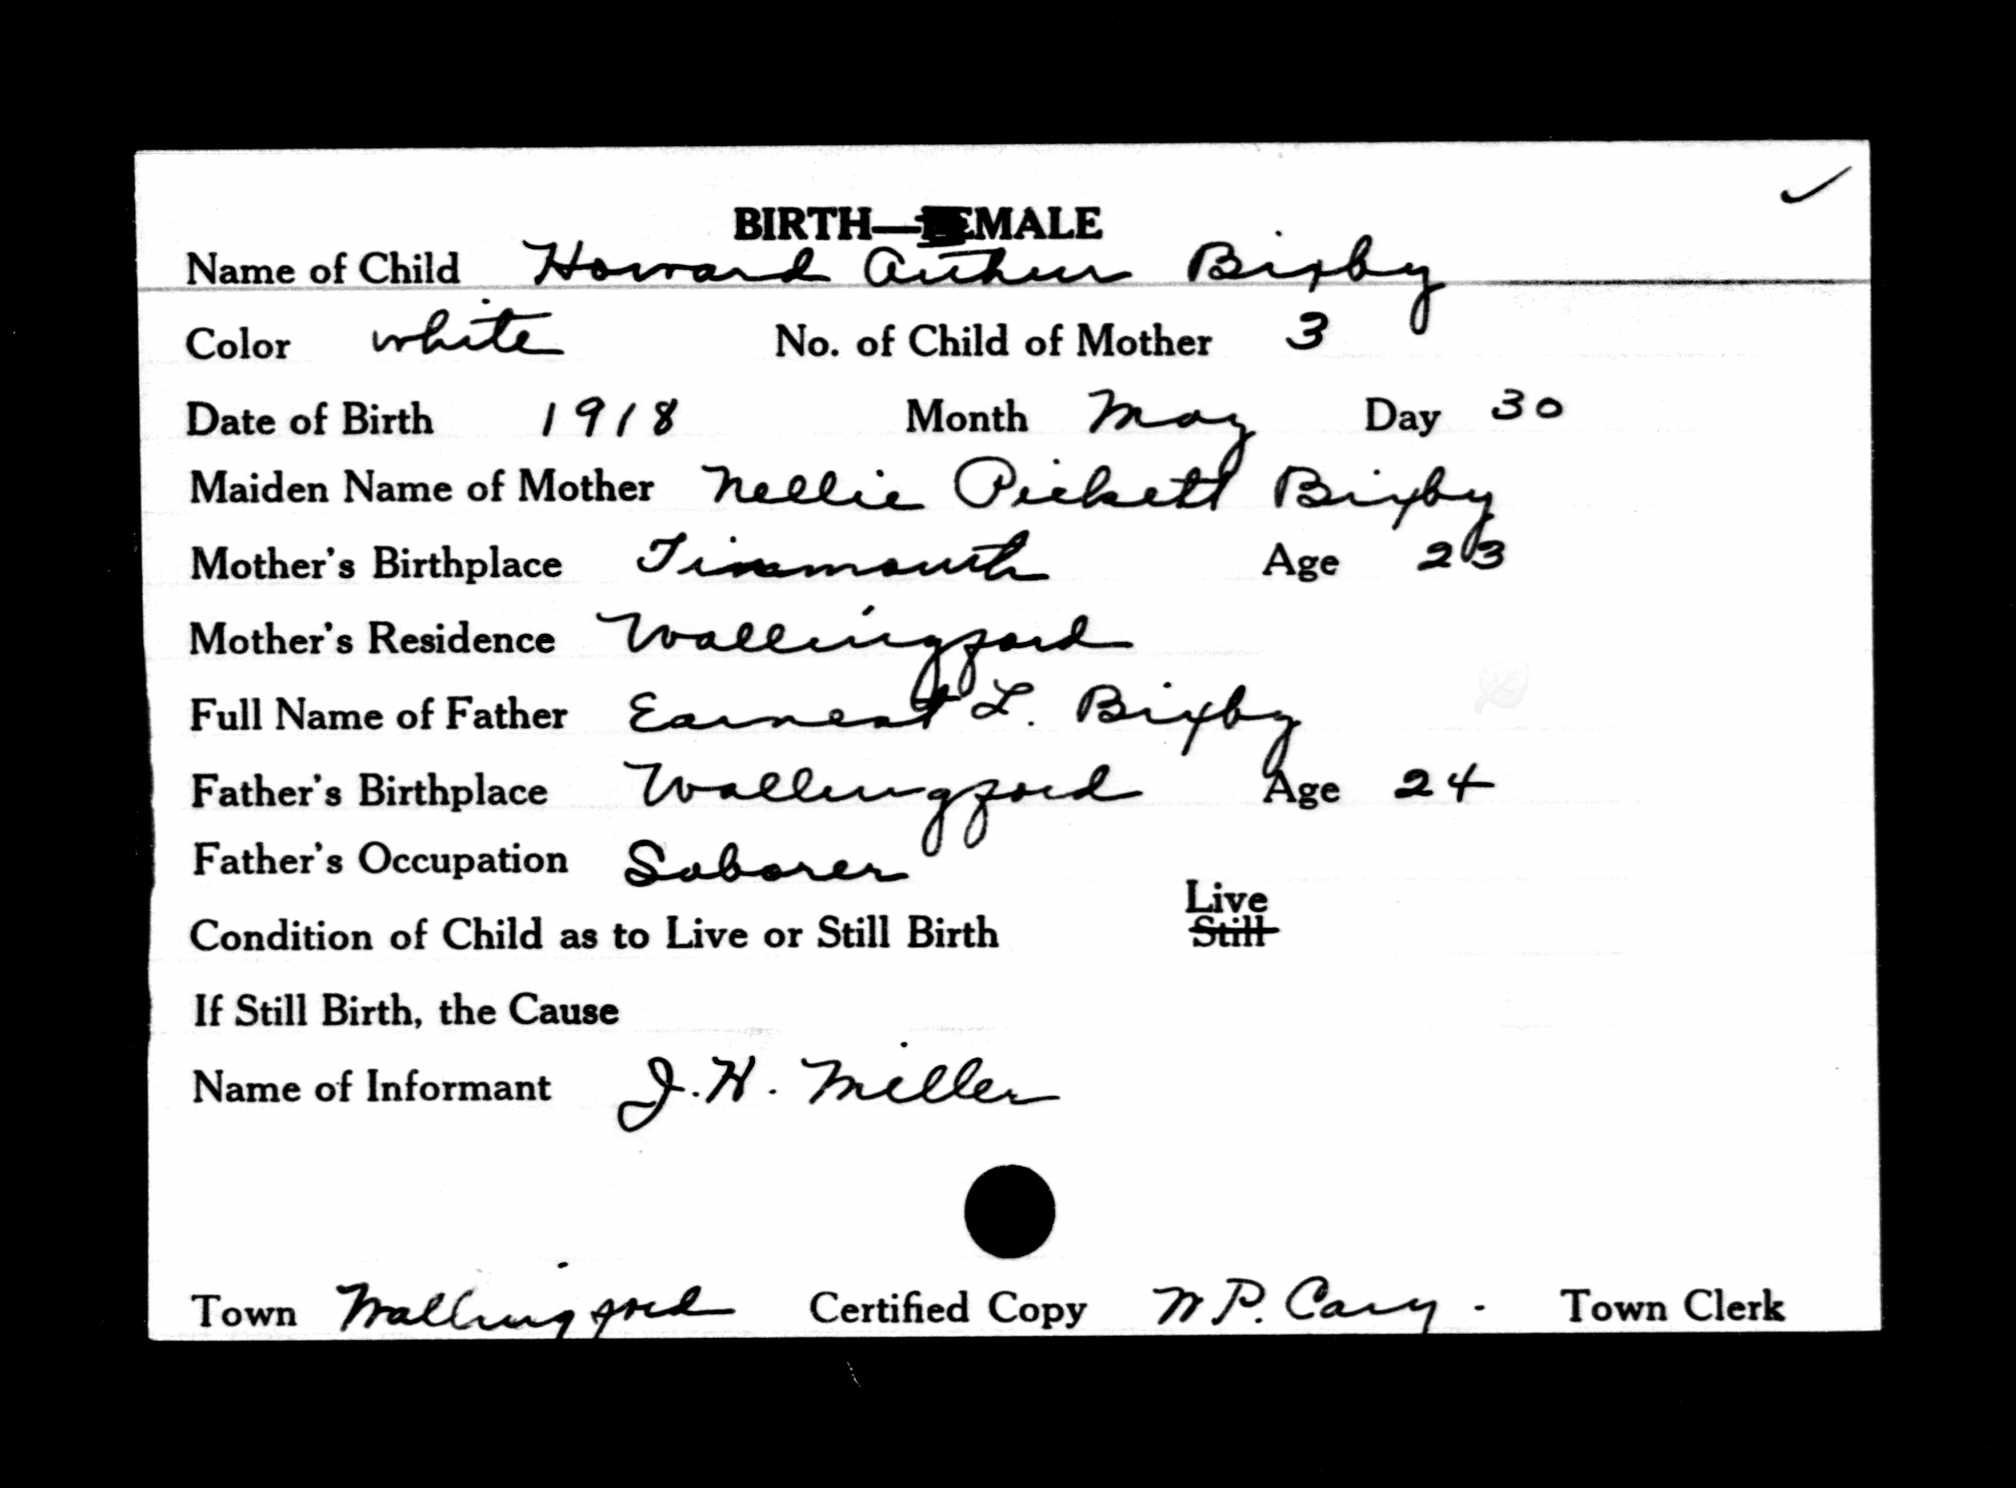 BIRTH—FEMALE
Name of Child Howard Arthur Bixby
Color white No. of Child of Mother 3
Date of Birth 1918 Month May Day 30
Maiden Name of Mother Nellie Pickett Bixby
Mother's Birthplace Tinmouth Age 23
Mother's Residence Wallingford
Full Name of Father Earnest L. Bixby
Father's Birthplace Wallingford Age 24
Father's Occupation Laborer
Live
Condition of Child as to Live or Still Birth Still
If Still Birth, the Cause
Name of Informant J. H. Miller
Town Wallingford Certified Copy W P. Cary. Town Clerk